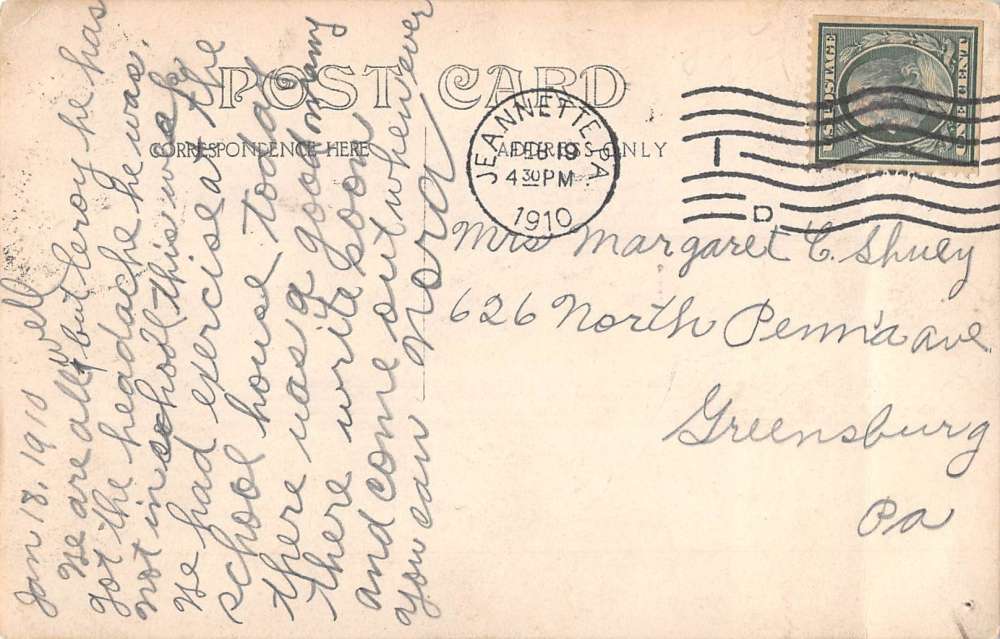 POST CARD
CORRESPONDENCE HERE
ADDRESS ONLY
JEANNETTE PA
FEB 19
4 30 PM
1910
U.S. POSTAGE
ONE CENT
1
D
Jan 18, 1910
We are all well
but Leroy he has
got the headache he was
not in school this week
We had exercise at the
school house today
there was a good many
there write soon
and come out whenever
you can Nora
Mrs Margaret C. Shuey
626 North Penn'a ave
Greensburg
Pa